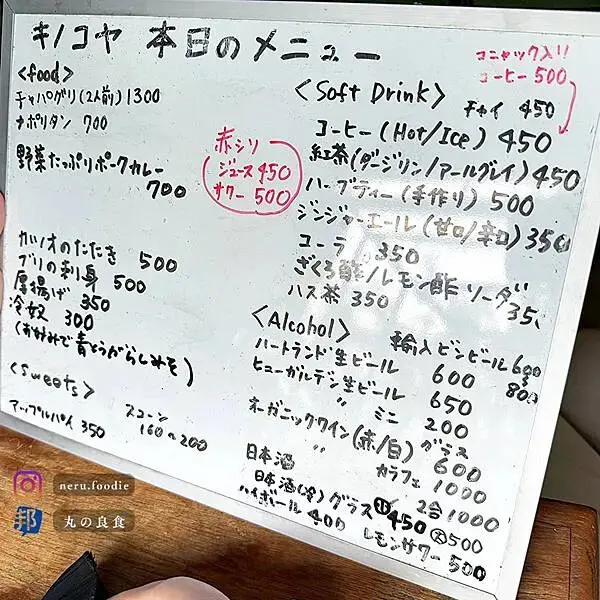 キノコヤ 本日のメニュー
<food>
チャパグリ(2人前) 1300
ナポリタン 700
野菜たっぷりポークカレー
700
赤シソ
ジュース 450
サワー 500
カツオのたたき 500
ブリの刺身 500
厚揚げ 350
冷奴 300
(お好みで青とうがらしみそ)
<sweets>
アップルパイ 350
スコーン
160〜200
コニャック入り!!
コーヒー 500
<Soft Drink>
チャイ 450
コーヒー(Hot/Ice) 450
紅茶(ダージリン/アールグレイ) 450
ハーブティー(手作り) 500
ジンジャーエール(甘口/辛口) 350
コーラ 350
ざくろ酢/レモン酢 ソーダ 35
ハス茶 350
<Alcohol>
輸入ビンビール 600
〜
800
ハートランド生ビール 600
ヒューガルデン生ビール 650
〃 ミニ 200
オーガニックワイン(赤/白) グラス 600
〃 カラフェ 1000
日本酒 2合 1000
日本酒(冷) グラス 450 大 500
ハイボール 400
レモンサワー 500
neru.foodie
邦 丸の良食